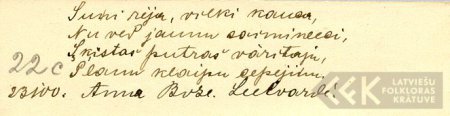 Suņi rēja, vilki kauca,
Nu ved jaunu saimnieci,
Šķistas putras vārītāju,
Plānu klaipu cepējiņu.
22c
23100. Anna Bože. Lielvārdē.
LATVIEŠU
FOLKLORAS
KRĀTUVE